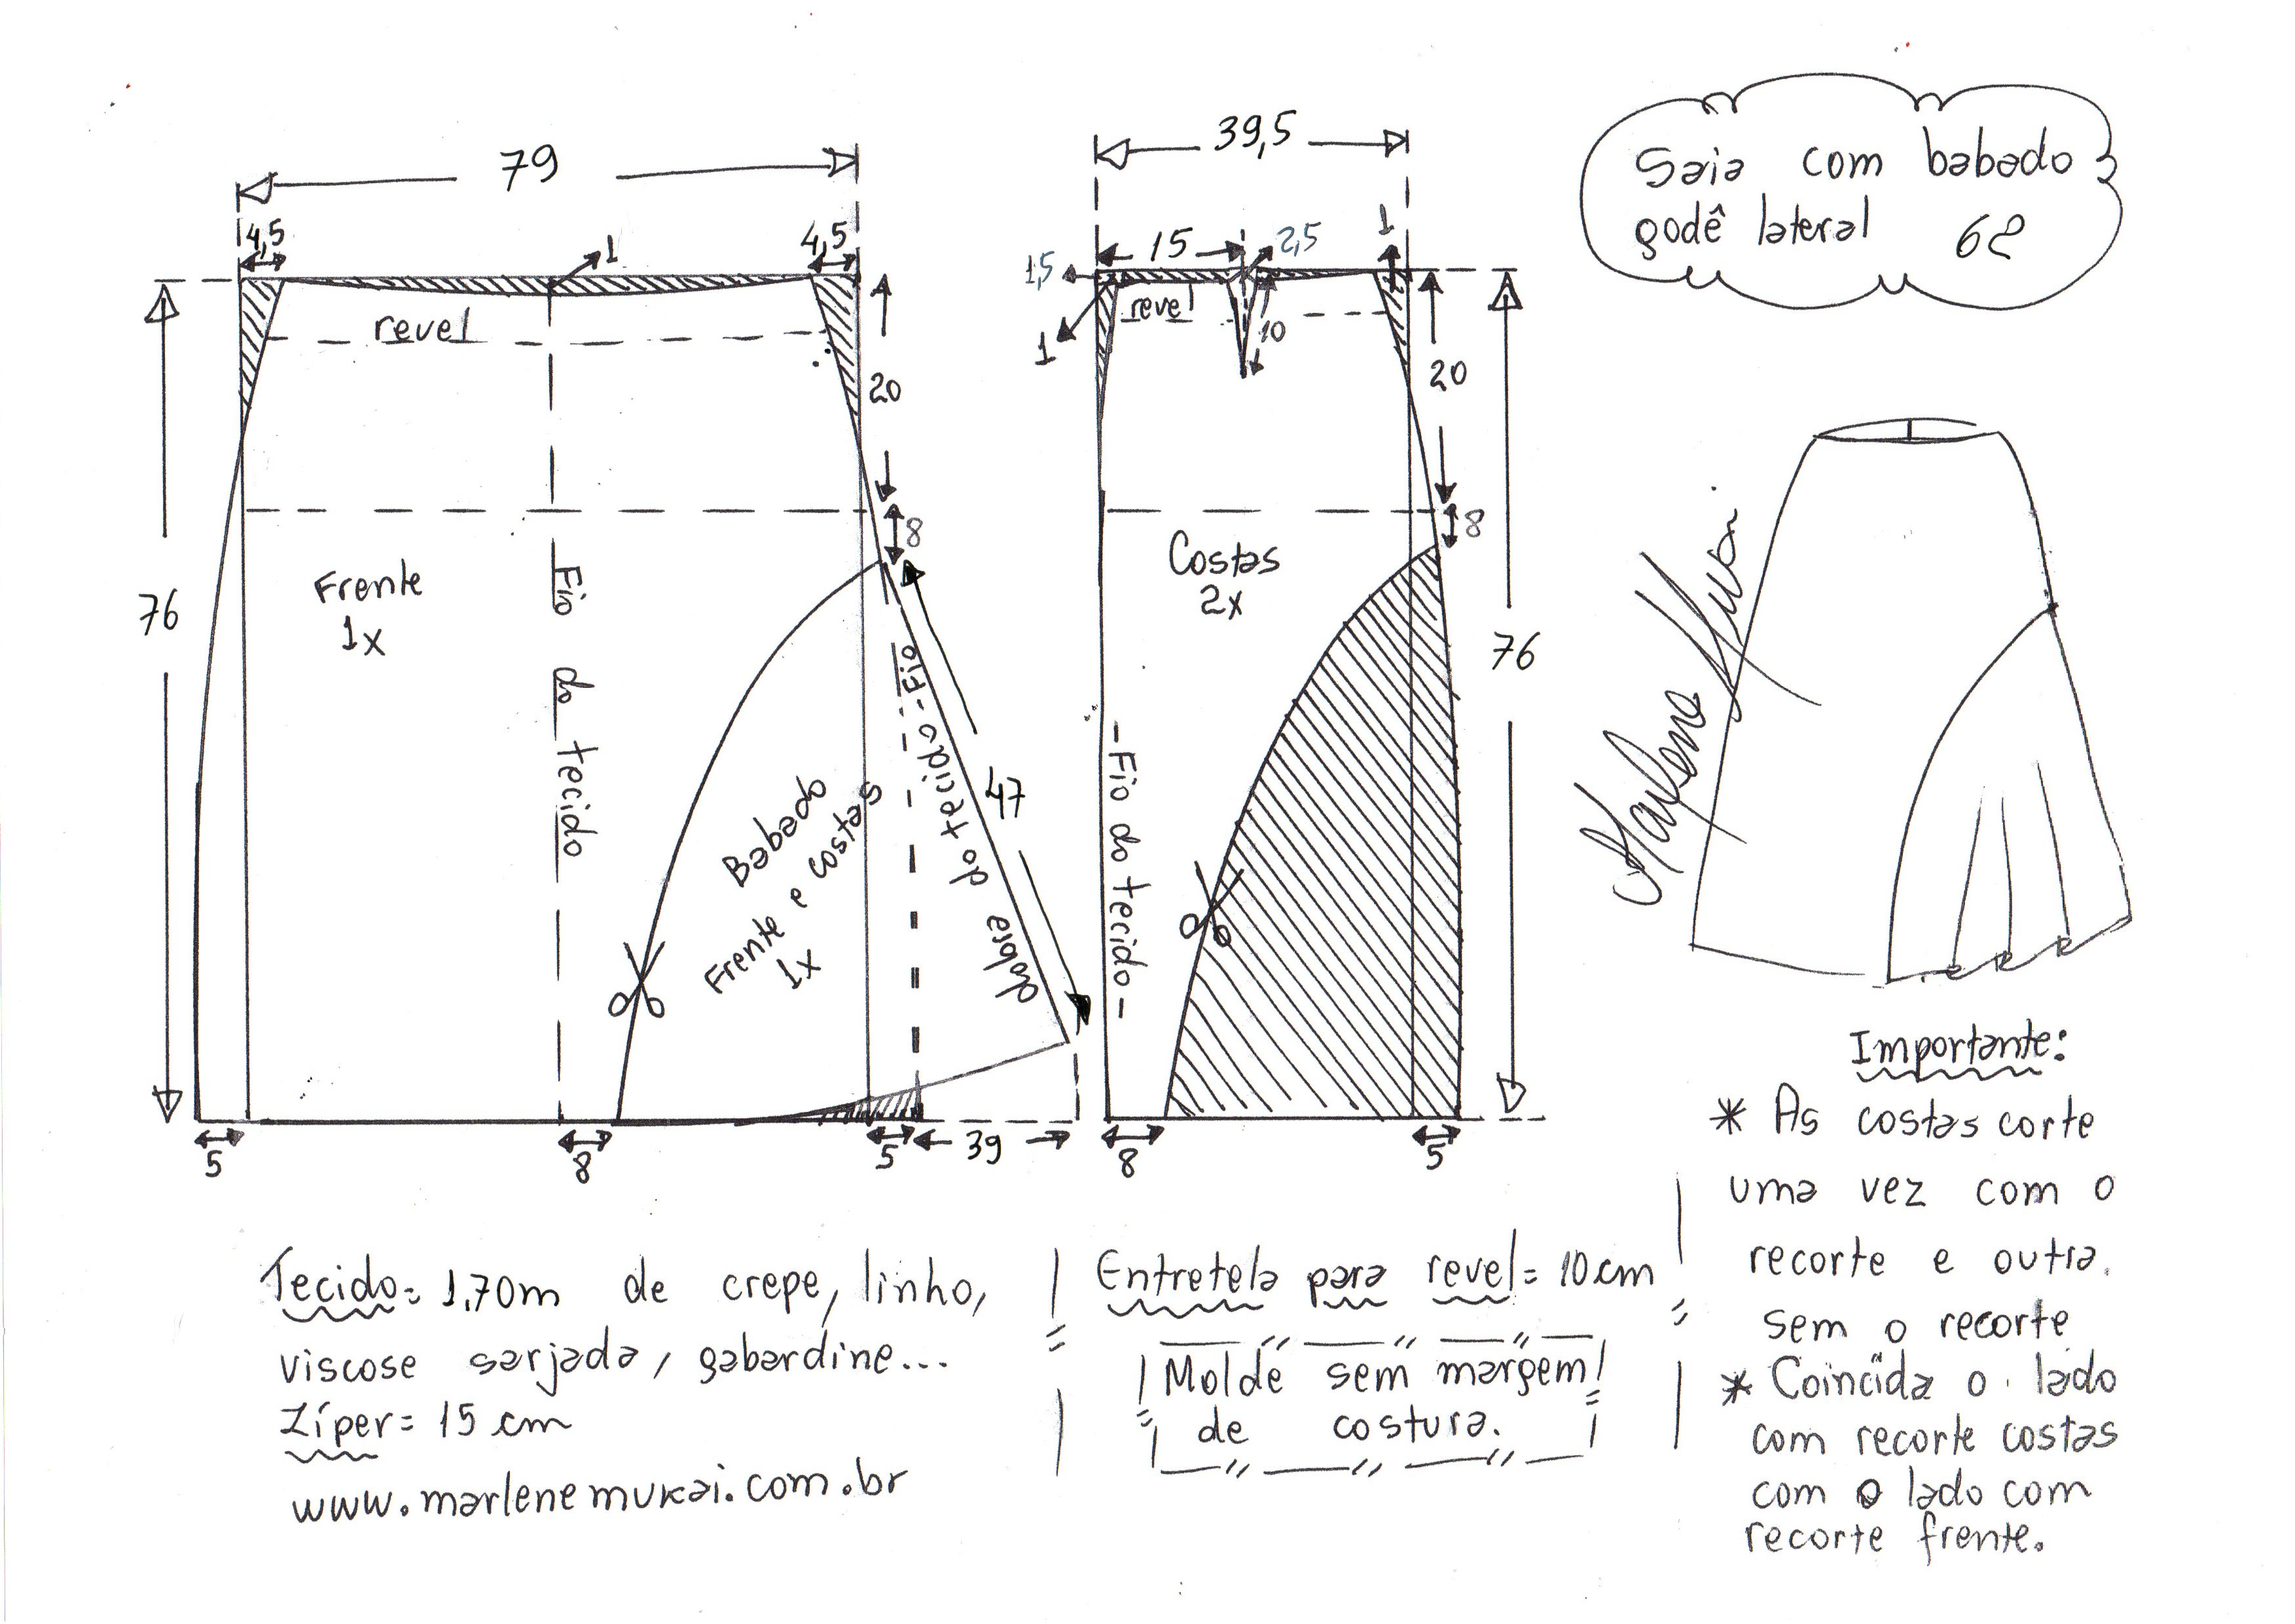 Saia com babado
godê lateral 62
79
4,5
4,5
1
revel
20
8
76
Frente
1x
Fio do tecido
Babado
Frente e costas
1x
Fio
do tecido
dobre
47
5
8
5
39
39,5
15
2,5
1
1,5
1
revel
10
20
8
Costas
2x
76
Fio do tecido
8
5
Marlene Mukai
Importante:
* As costas corte
uma vez com o
recorte e outra
sem o recorte
* Coincida o lado
com recorte costas
com o lado com
recorte frente.
Tecido= 1,70m de crepe, linho,
viscose sarjada, gabardine...
Zíper= 15 cm
www.marlenemukai.com.br
Entretela para revel= 10cm
Molde sem margem
de costura.